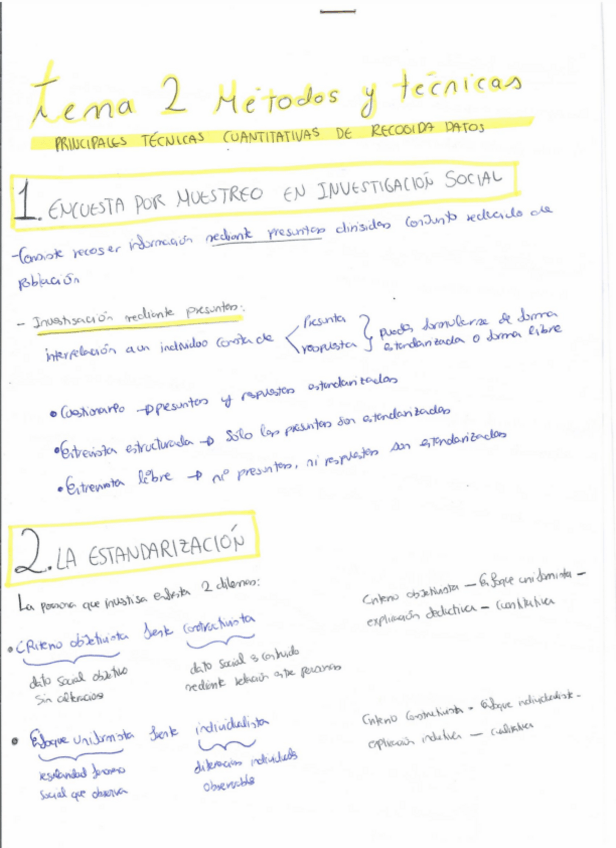 Tema 2 Métodos y técnicas
PRINCIPALES TÉCNICAS CUANTITATIVAS DE RECOGIDA DATOS
1. ENCUESTA POR MUESTREO EN INVESTIGACIÓN SOCIAL
- Consiste recoger información mediante preguntas dirigidas conjunto reducido de
población
- Investigación mediante preguntas:
interpelación a un individuo consta de
Pregunta
respuesta
puede formularse de forma
estandarizada o forma libre
• Cuestionario → preguntas y respuestas estandarizadas
• Entrevista estructurada → Sólo las preguntas son estandarizadas
• Entrevista libre → ni preguntas, ni respuestas son estandarizadas
2. LA ESTANDARIZACIÓN
La persona que investiga enfrenta 2 dilemas:
• CRiterio objetivista frente constructivista
dato social objetivo
sin alteracios
dato social construido
mediante relación entre personas
Criterio objetivista - Enfoque uniformista -
explicación deductiva - cuantitativa
• Enfoque uniformista frente individualista
regularidad
social que observa
diferencias individuales
observable
Criterio constructivista - Enfoque individualist -
explicación inductiva - cualitativa